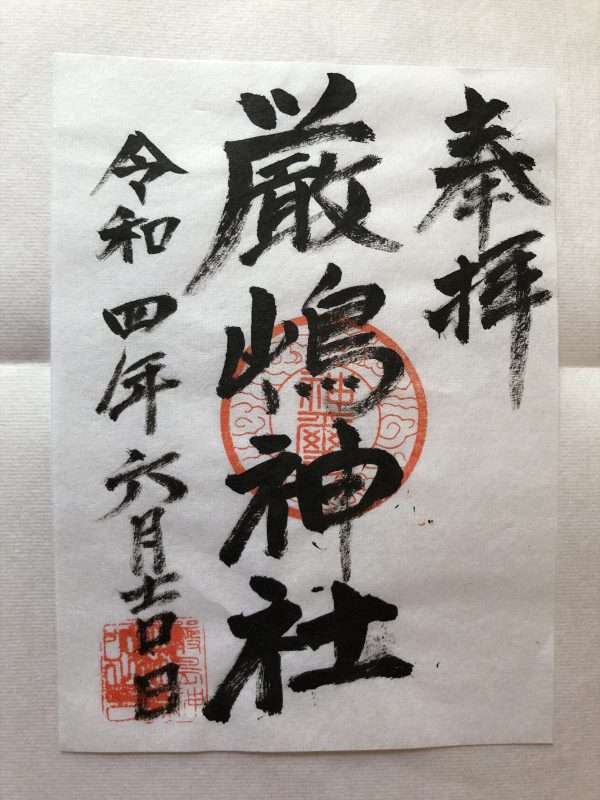 奉拝
厳嶋神社
令和四年六月吉日